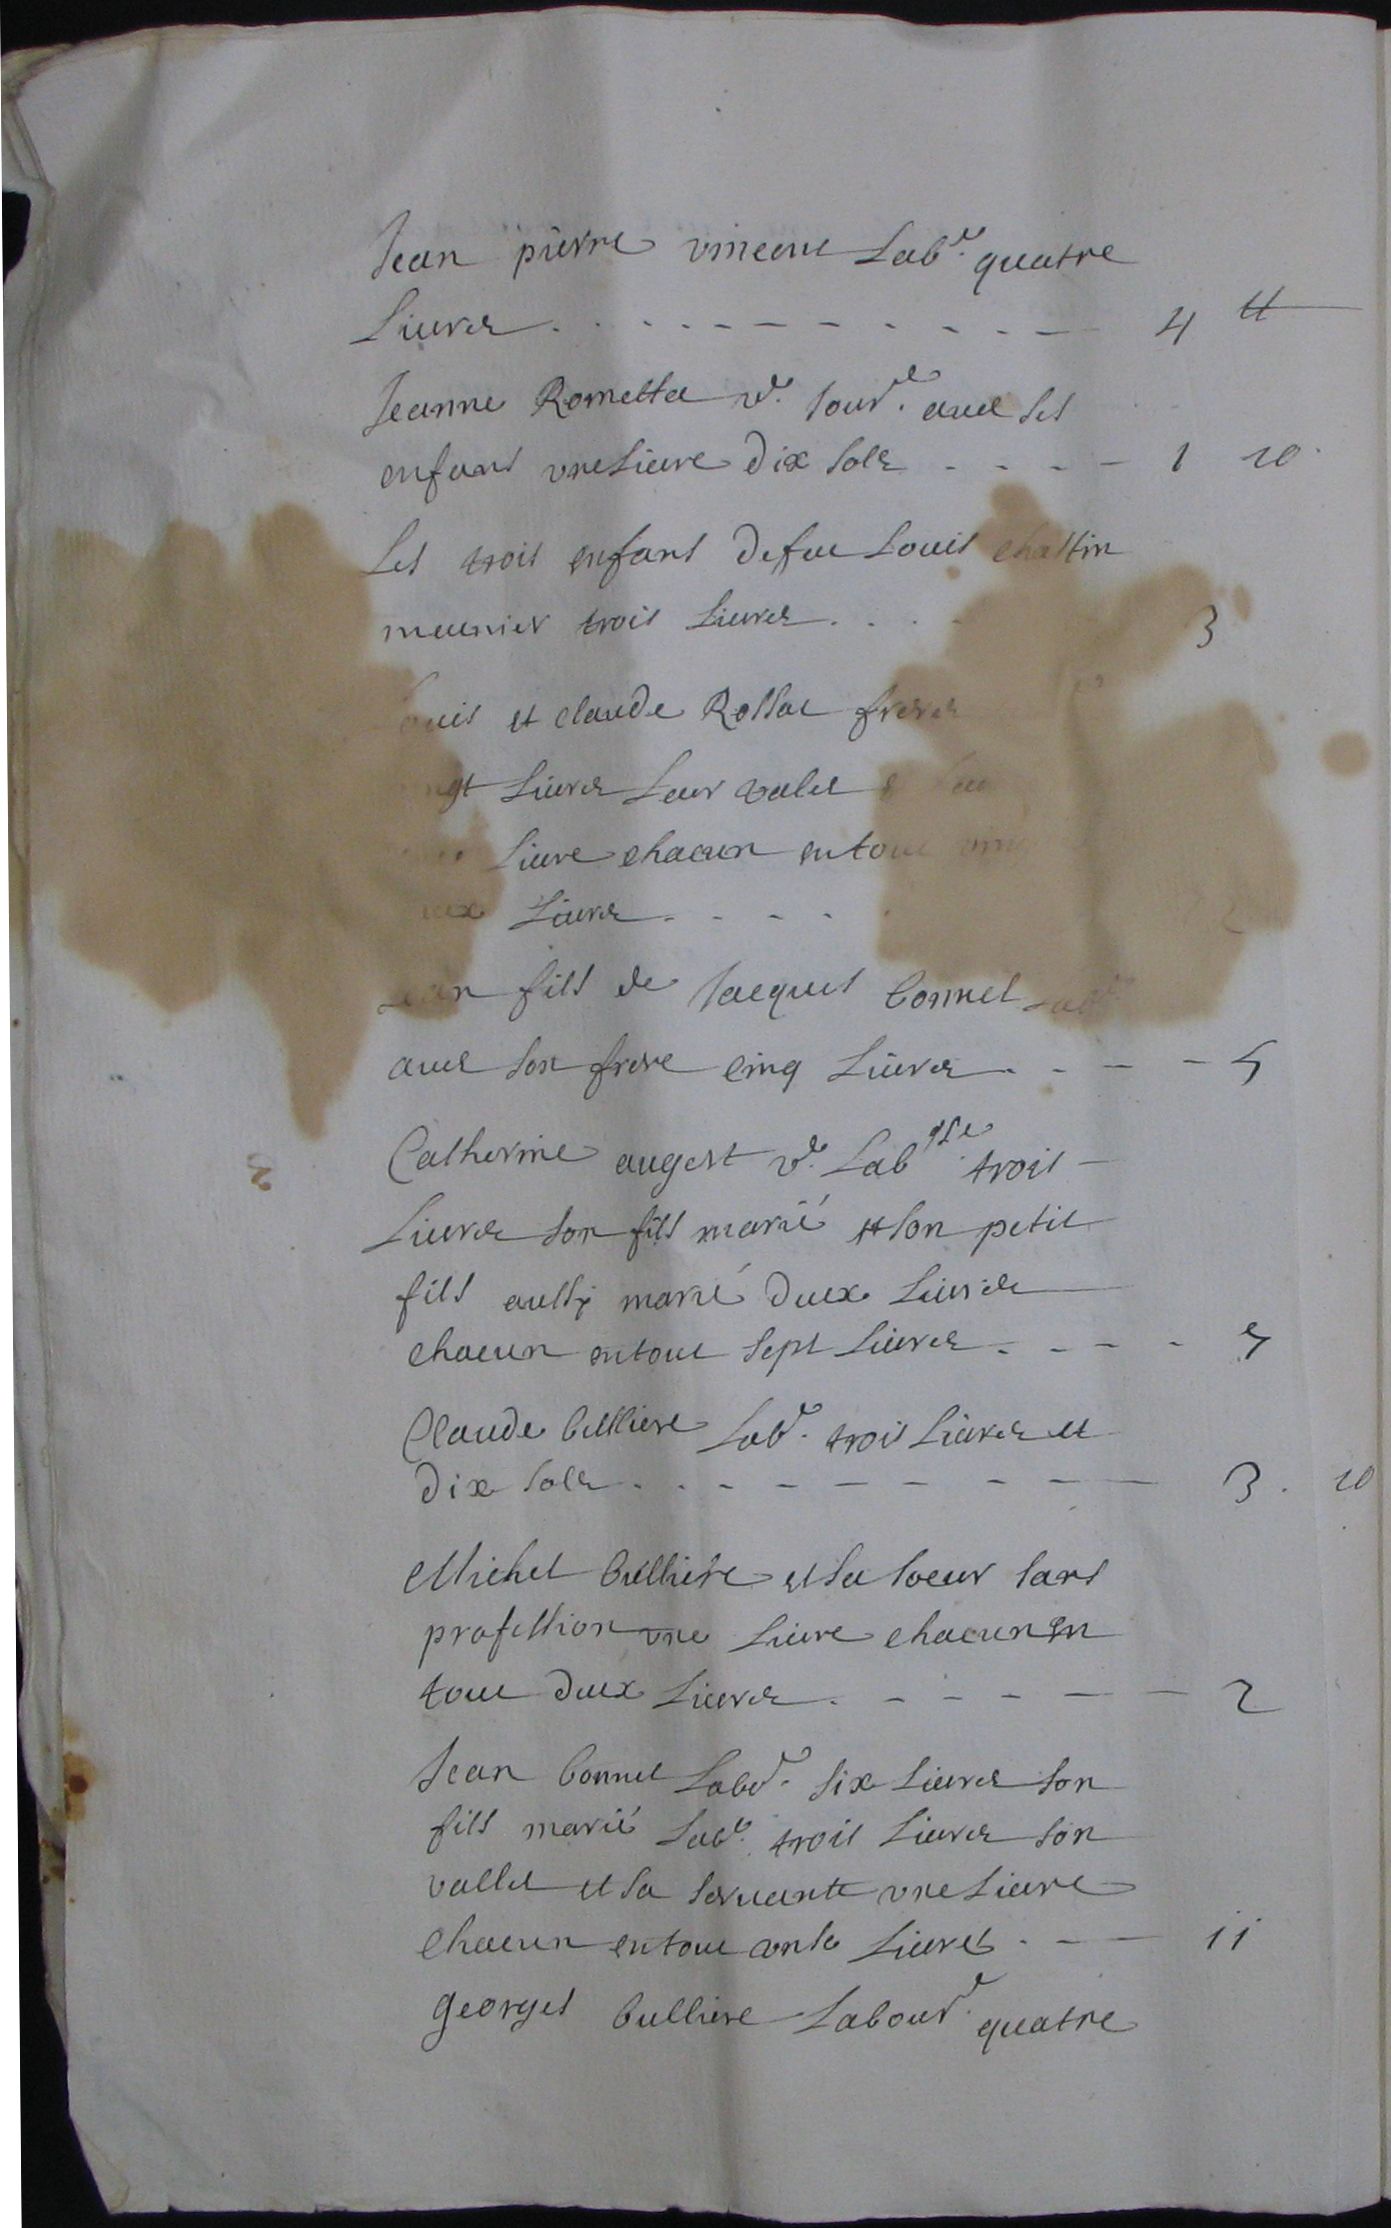 Jean pierre vincent Labr. quatre
Livres . . . . - - - - - - - - 4 ₶
Jeanne Rometta ve. Jour. avec ses
enfans une Livre dix sols - - - - 1 10
Les trois enfans de feu Louis chastin
meunier trois Livres . . . 3
ouis et claude Rossat freres
ngt Livres Leur valet
Livre chacun en tout
eux Livres - - - -
Jean fils de Jacques bonnet Labr.
avec son frere cinq Livres - - - - 5
Catherine augert ve. Lab trois
Livres son fils marié et son petit
fils aussy marié deux Livres
chacun en tout sept Livres - - - - 7
Claude bulliere Labr. trois Livres et
dix sols - - - - - - - - - 3 . 10
Michel bulliere et sa soeur sans
profession une Livre chacun en
tout deux Livres - - - - - - 2
Jean bonnet Labr. six Livres son
fils marié Labr. trois Livres son
vallet et sa servante une Livre
chacun en tout onse Livres - - - 11
georges bulliere Labour. quatre